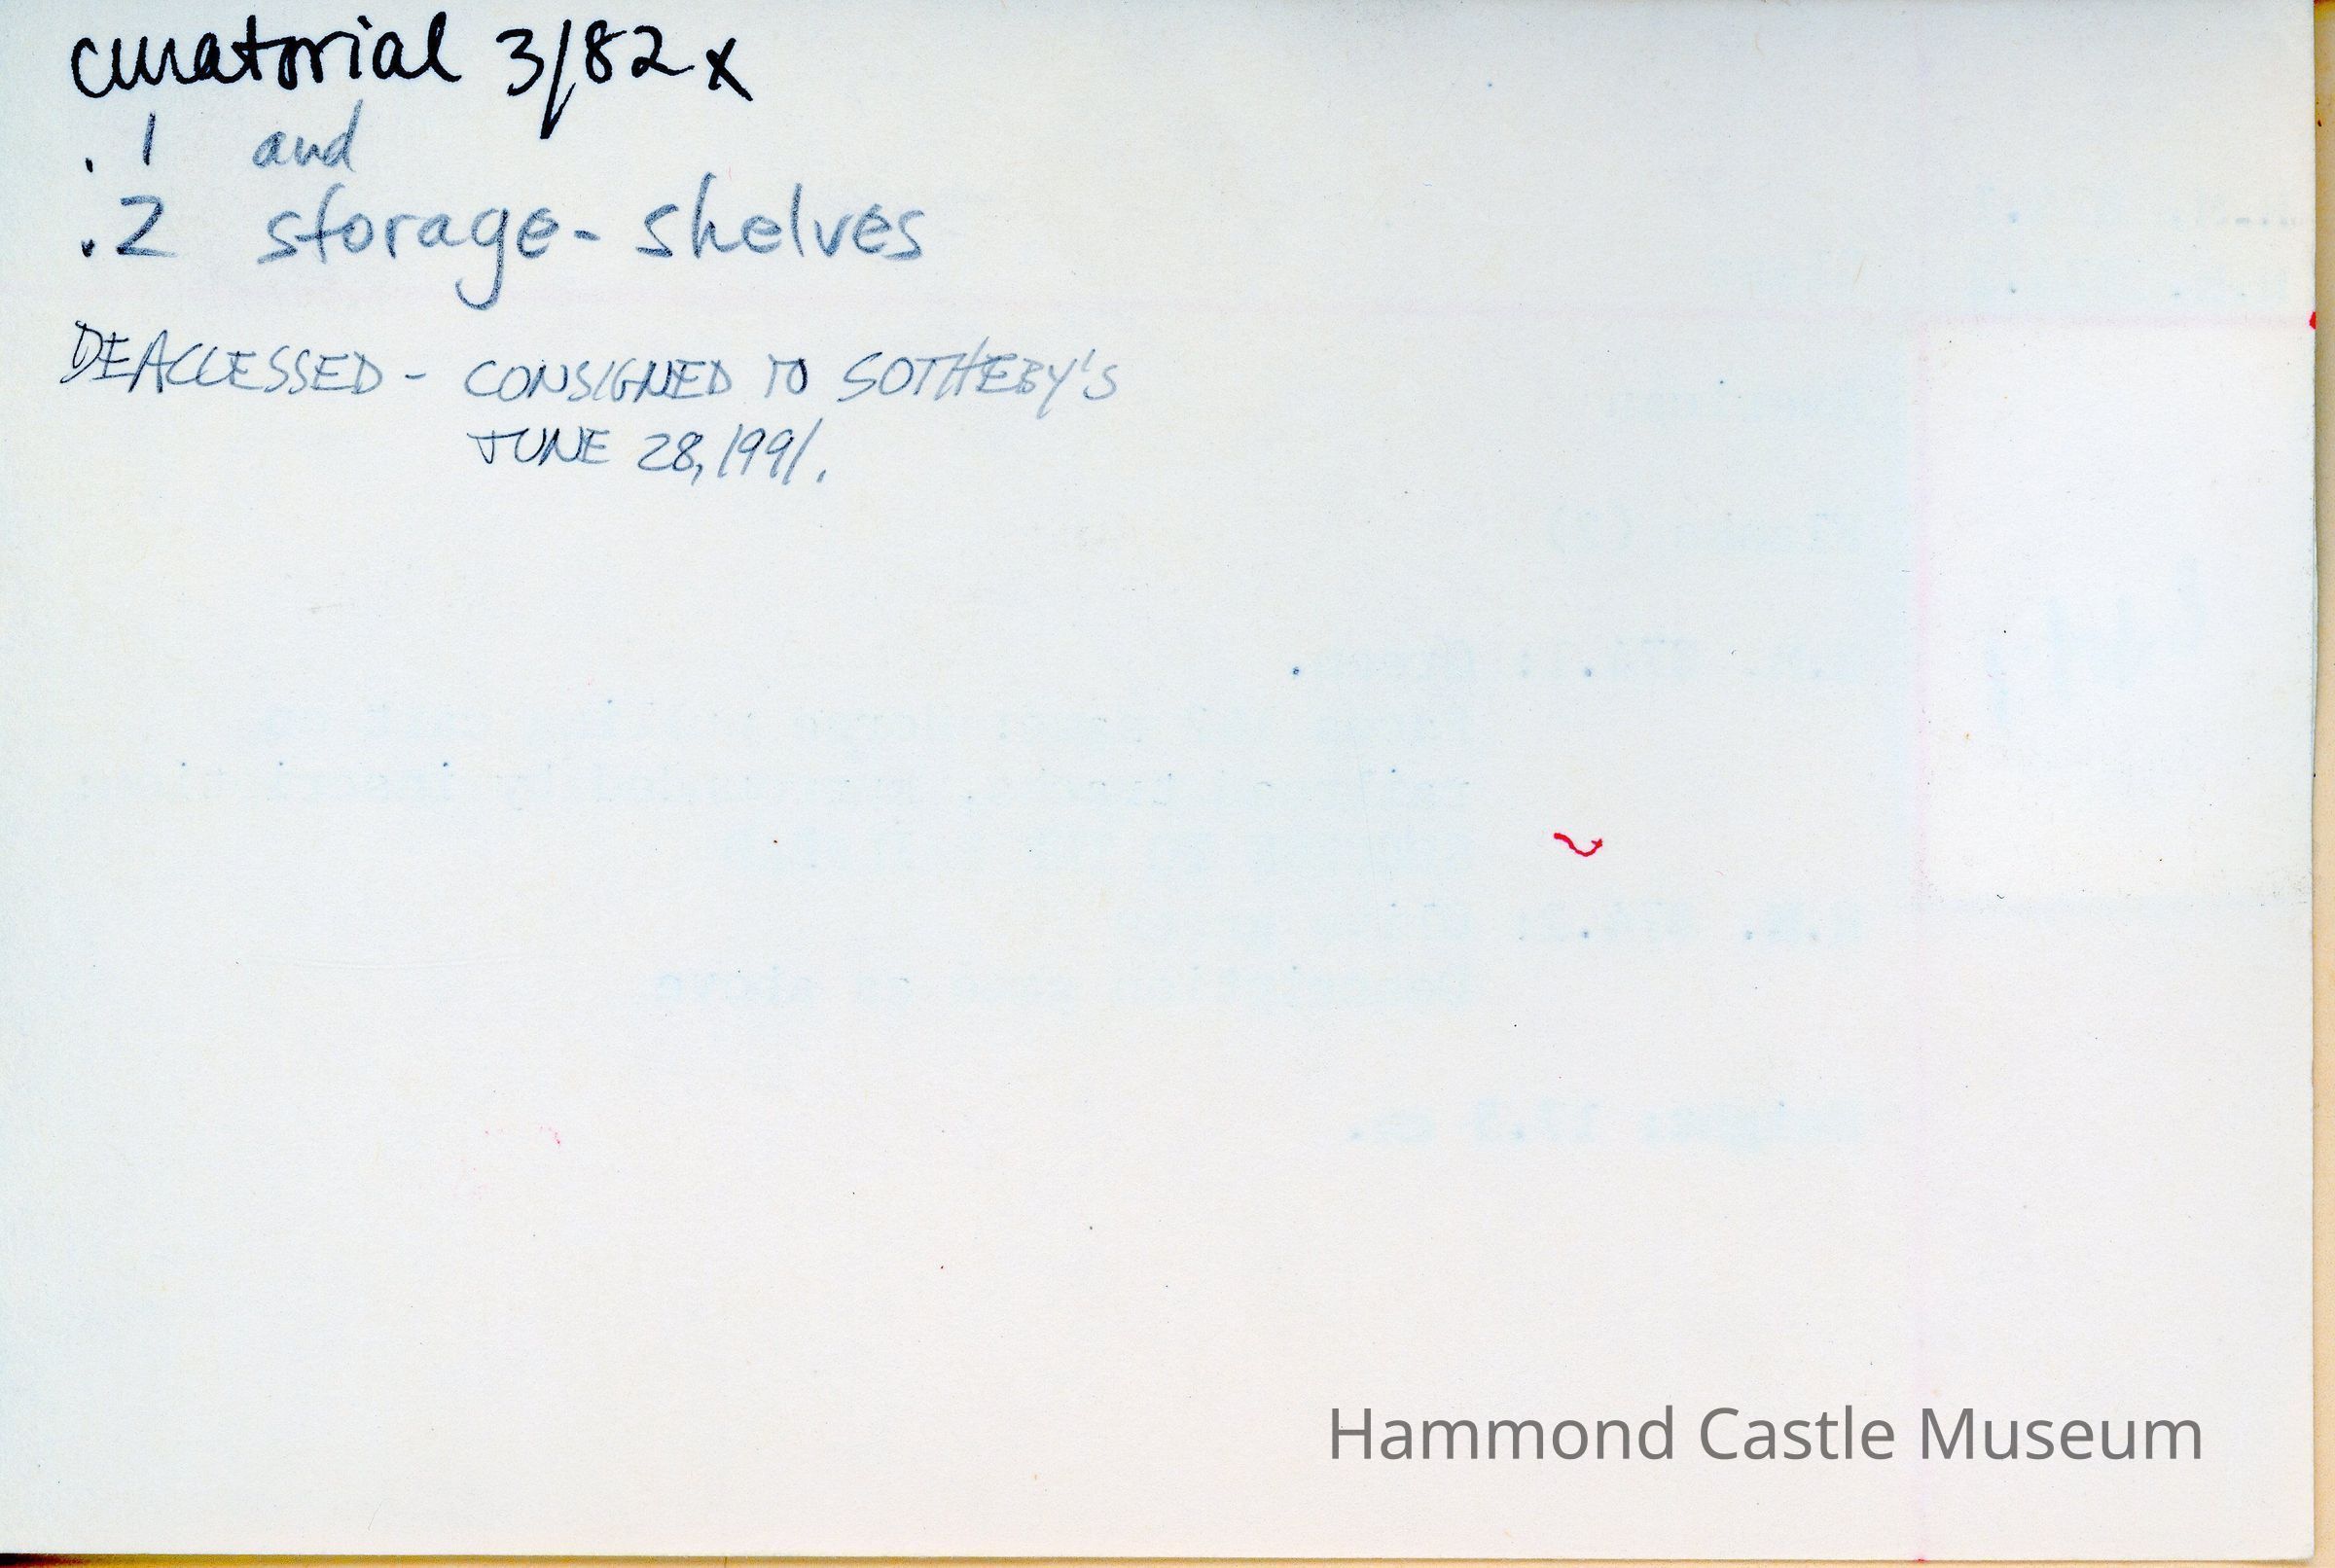 curatorial 3/82 x
. 1 and
.2 storage - shelves
DEACCESSED - CONSIGNED TO SOTHEBY'S
JUNE 28, 1991.
Hammond Castle Museum